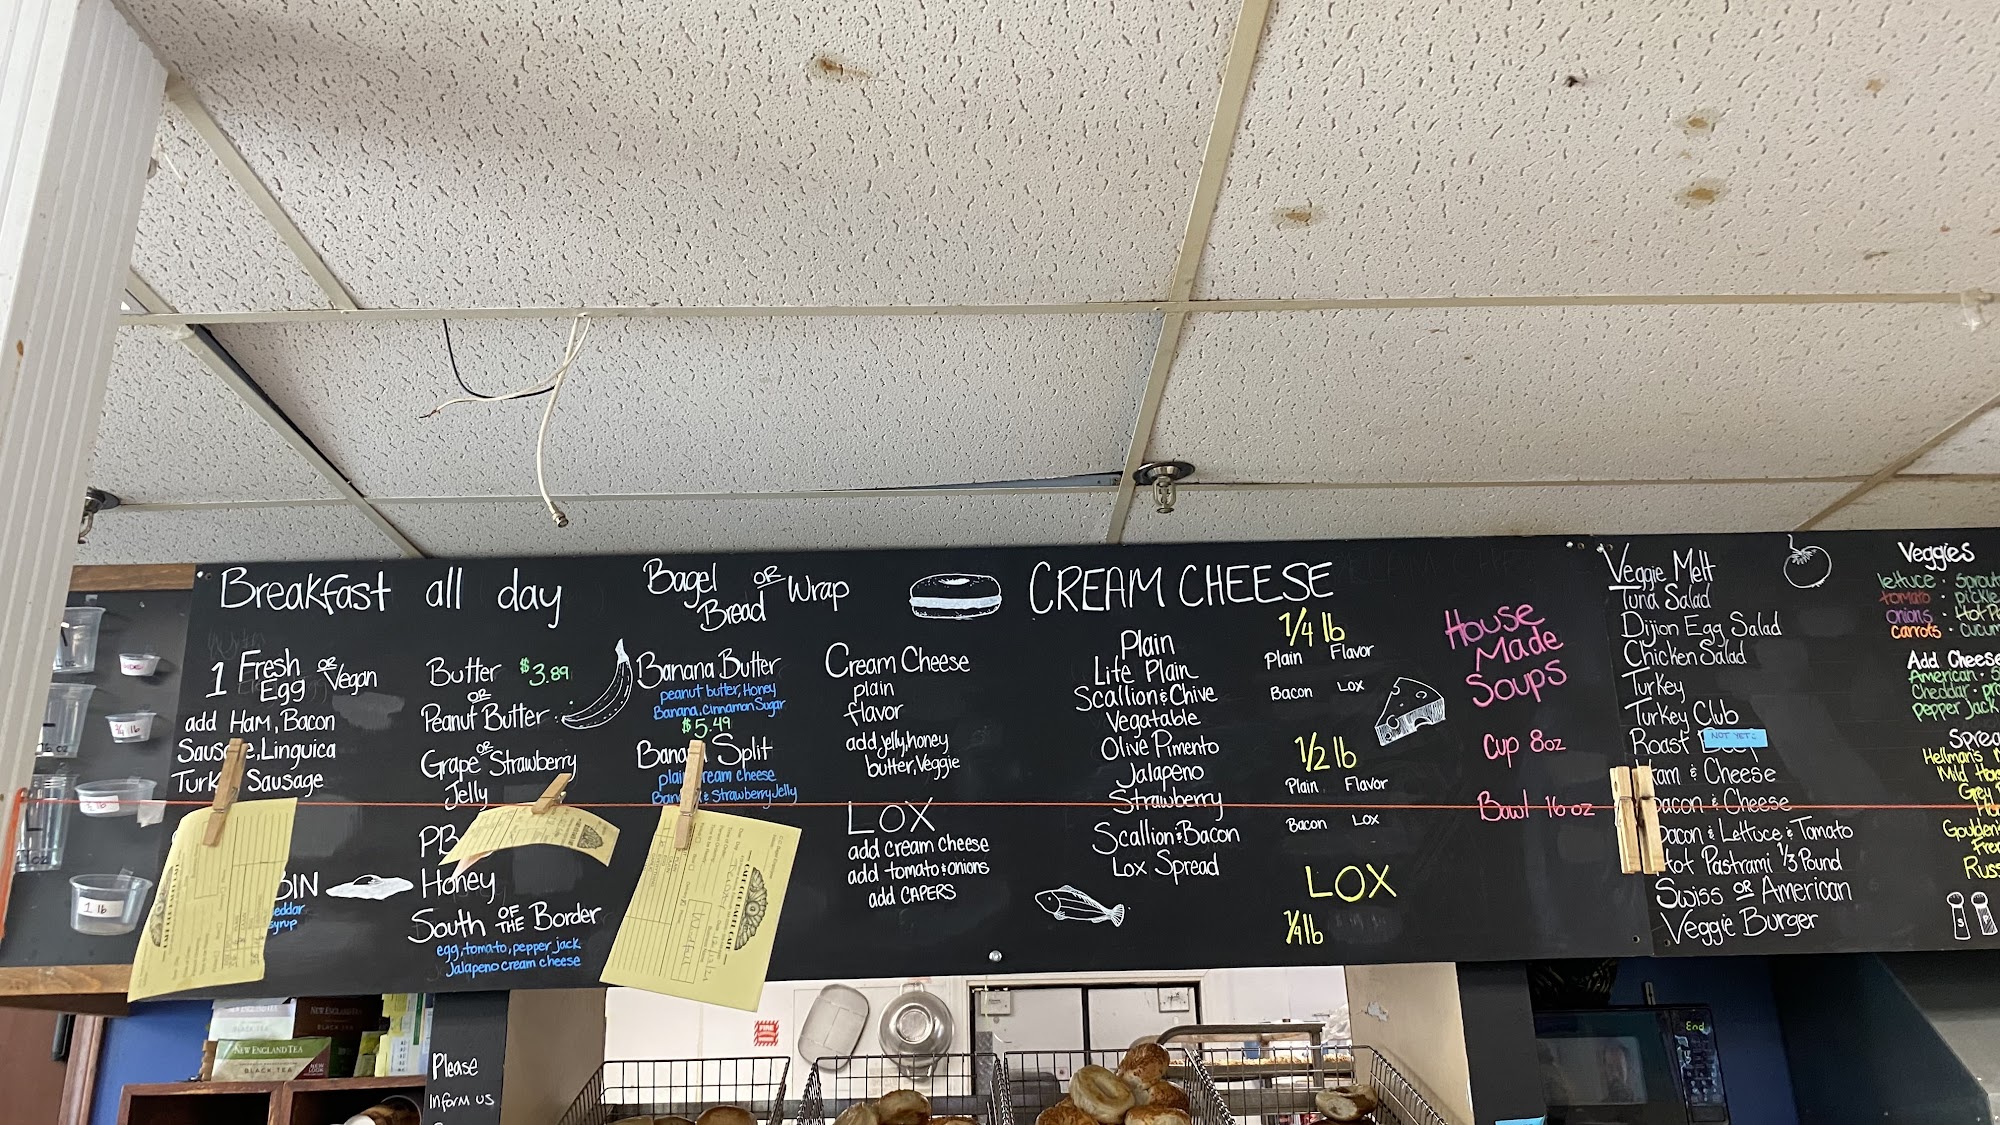 Breakfast all day
Bagel OR Wrap
Bread
1 Fresh OR Vegan
Egg
add Ham, Bacon
Linguica
Sausage
BIN
syrup
Butter $3.89
OR
Peanut Butter
OR
Grape Strawberry
Jelly
PB
Honey
South OF THE Border
egg, tomato, pepper jack
Jalapeno cream cheese
Banana Butter
peanut butter, Honey
Banana, Cinnamon Sugar
$5.49
Split
cream cheese
& Strawberry Jelly
Cream Cheese
plain
flavor
add jelly, honey
butter, Veggie
LOX
add cream cheese
add tomato & onions
add CAPERS
CREAM CHEESE
Plain
Lite Plain
Scallion & Chive
Vegatable
Olive Pimento
Jalapeno
Strawberry
Scallion & Bacon
Lox Spread
1/4 lb
Plain Flavor
Bacon Lox
1/2 lb
Plain Flavor
Bacon Lox
LOX
1/4 lb
House
Made
Soups
Cup 8oz
Bowl 16 oz
Veggie Melt
Tuna Salad
Dijon Egg Salad
Chicken Salad
Turkey
Turkey Club
Roast
NOT YET
& Cheese
& Cheese
& Lettuce & Tomato
Pastrami 1/3 Pound
Swiss OR American
Veggie Burger
Veggies
lettuce · 
tomato · 
onions · 
carrots · 
Add Cheese
American · 
Cheddar · 
pepper jack
Hellman's
Mild
1 lb
NEW ENGLAND TEA
BLACK TEA
NEW LOOK
Please
inform us
FIRE
End